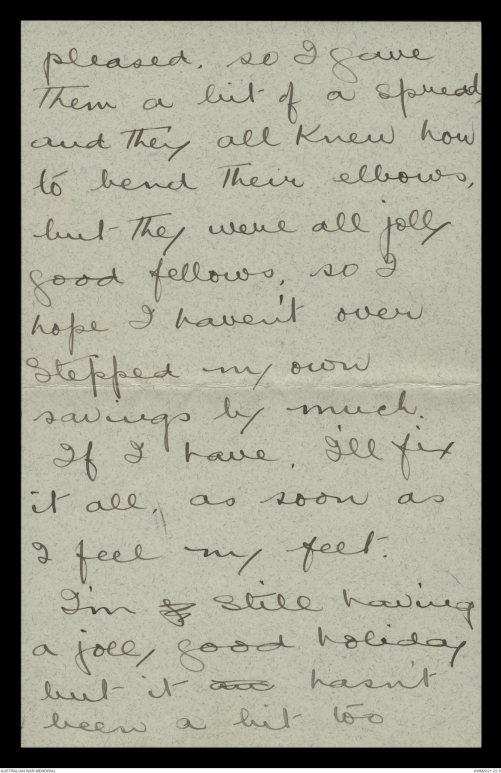 pleased, so I gave
them a bit of a spread,
and they all knew how
to bend their elbows,
but they were all jolly
good fellows, so I
hope I haven't over
stepped my own
savings by much.
If I have, I'll fix
it all, as soon as
I feel my feet.
I'm still having
a jolly good holiday
but it hasn't
been a bit too
AUSTRALIAN WAR MEMORIAL